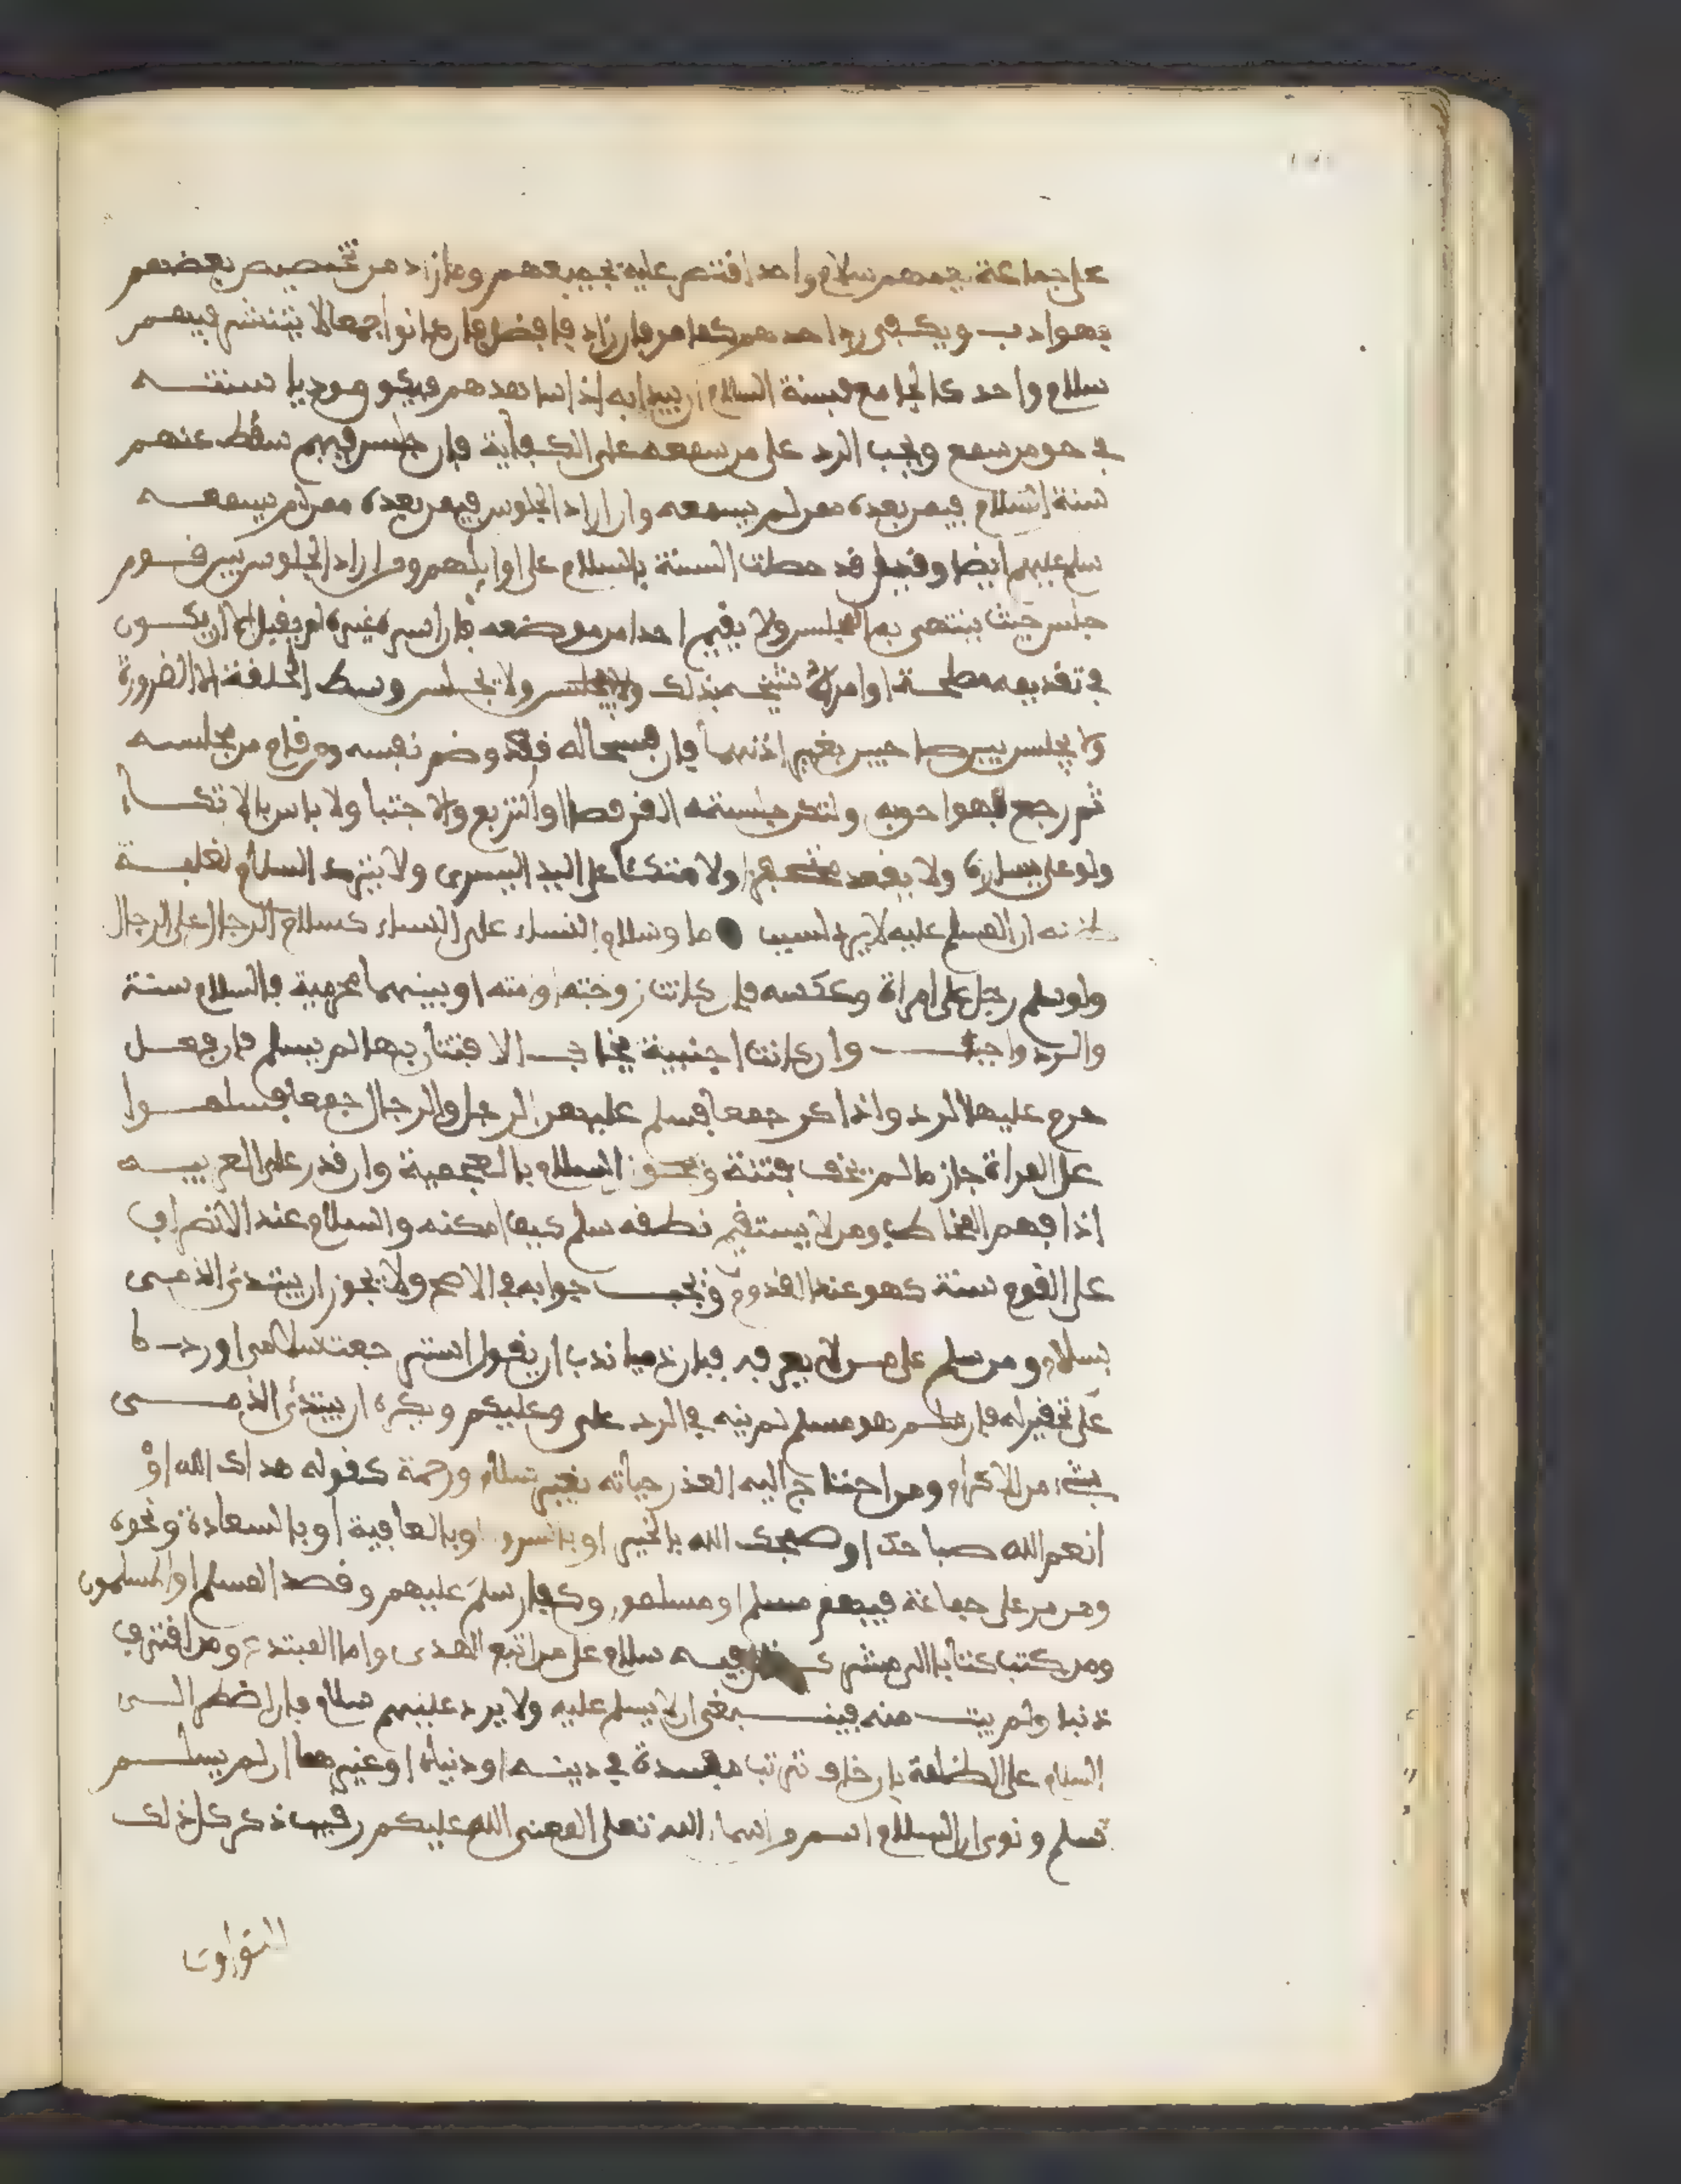 على جماعة يعمهم سلام واحد اقتصر عليه بجميعهم وما زاد من تخصيص بعضهم
فهو ادب ويكفي رد احدهم كما مر فان زاد فافضل فان كانوا جمعا لا ينتشر فيهم
سلام واحد كالجامع فسنة السلام ان يبدا به اذا شاهدهم فيكون موديا سنته
في حق من سمع ويجب الرد على من سمعه على الكفاية فان جلس فيهم سقط عنهم
سنة السلام فيمن بعده ممن لم يسمعه وان اراد الجلوس فيمن بعده ممن لم يسمعه
سلم عليهم ايضا وقيل قد حصلت السنة بالسلام على اوايلهم ومن اراد الجلوس بين قوم
جلس حيث ينتهي به المجلس ولا يقيم احدا من موضعه فان اثره غيره لم يقبل الا ان يكون
في تقديمه مصلحة او امره شيخه بذلك ولا يجلس وسط الحلقة الا لضرورة
ولا يجلس بين صاحبين بغير اذنهما فان فسحا له قعد وضم نفسه ومن قام من مجلسه
ثم رجع فهو احق به ولتكن جلسته القرفصا او التربع والاحتبا ولا باس بالاتكاء
ولو على يساره ولا يقعد ولا متكئا على اليد اليسرى ولا يترك السلام لغلبة
ظنه ان المسلم عليه لا يرد لسبب ما وسلام النساء على النساء كسلام الرجال على الرجال
ولو سلم رجل على امراة وعكسه فان كانت زوجته او امته او بينهما محرمية فالسلام سنة
والرد واجب وان كانت اجنبية يخاف الافتتان بها لم يسلم فان فعل
حرم عليها الرد واذا كن جمعا فسلم عليهن الرجل والرجال جمعا فسلموا
على المراة جاز ما لم تخف فتنة ويجوز السلام بالعجمية وان قدر على العربيه
اذا فهم المخاطب ومن لا يستقيم نطقه سلم كيف امكنه والسلام عند الانصراف
على القوم سنة كهو عند القدوم ويجب جوابه في الاصح ولا يجوز ان يبتدئ الذمي
بسلام ومن سلم على من لا يعرفه فبان ذميا ندب ان يقول استرجعت سلامي اورد
على تحقير له فان سلم هو مسلم لم يزد في الرد على وعليكم ويكره ان يبتدئ الذمي
بشيء من الاكرام ومن احتاج اليه لعذر حياه بغير سلام ورحمة كقوله هداك الله او
انعم الله صباحك او صبحك الله بالخير او بالسرور او بالعافية او بالسعادة ونحوه
ومن مر على جماعة فيهم مسلم او مسلمون وكفار سلم عليهم وقصد المسلم او المسلمون
ومن كتب كتابا الى مشرك فيه سلام على من اتبع الهدى واما المبتدع ومن اقترف
ذنبا ولم يتب منه فينبغي ان لا يسلم عليه ولا يرد عليهم سلام فان اضطر الى
السلام على الظلمة بان خاف ترتب مفسدة في دينه او دنياه او غيرهما ان لم يسلم
سلم ونوى ان السلام اسم من اسماء الله تعلى المعنى الله عليكم رقيب ذكر كل ذلك